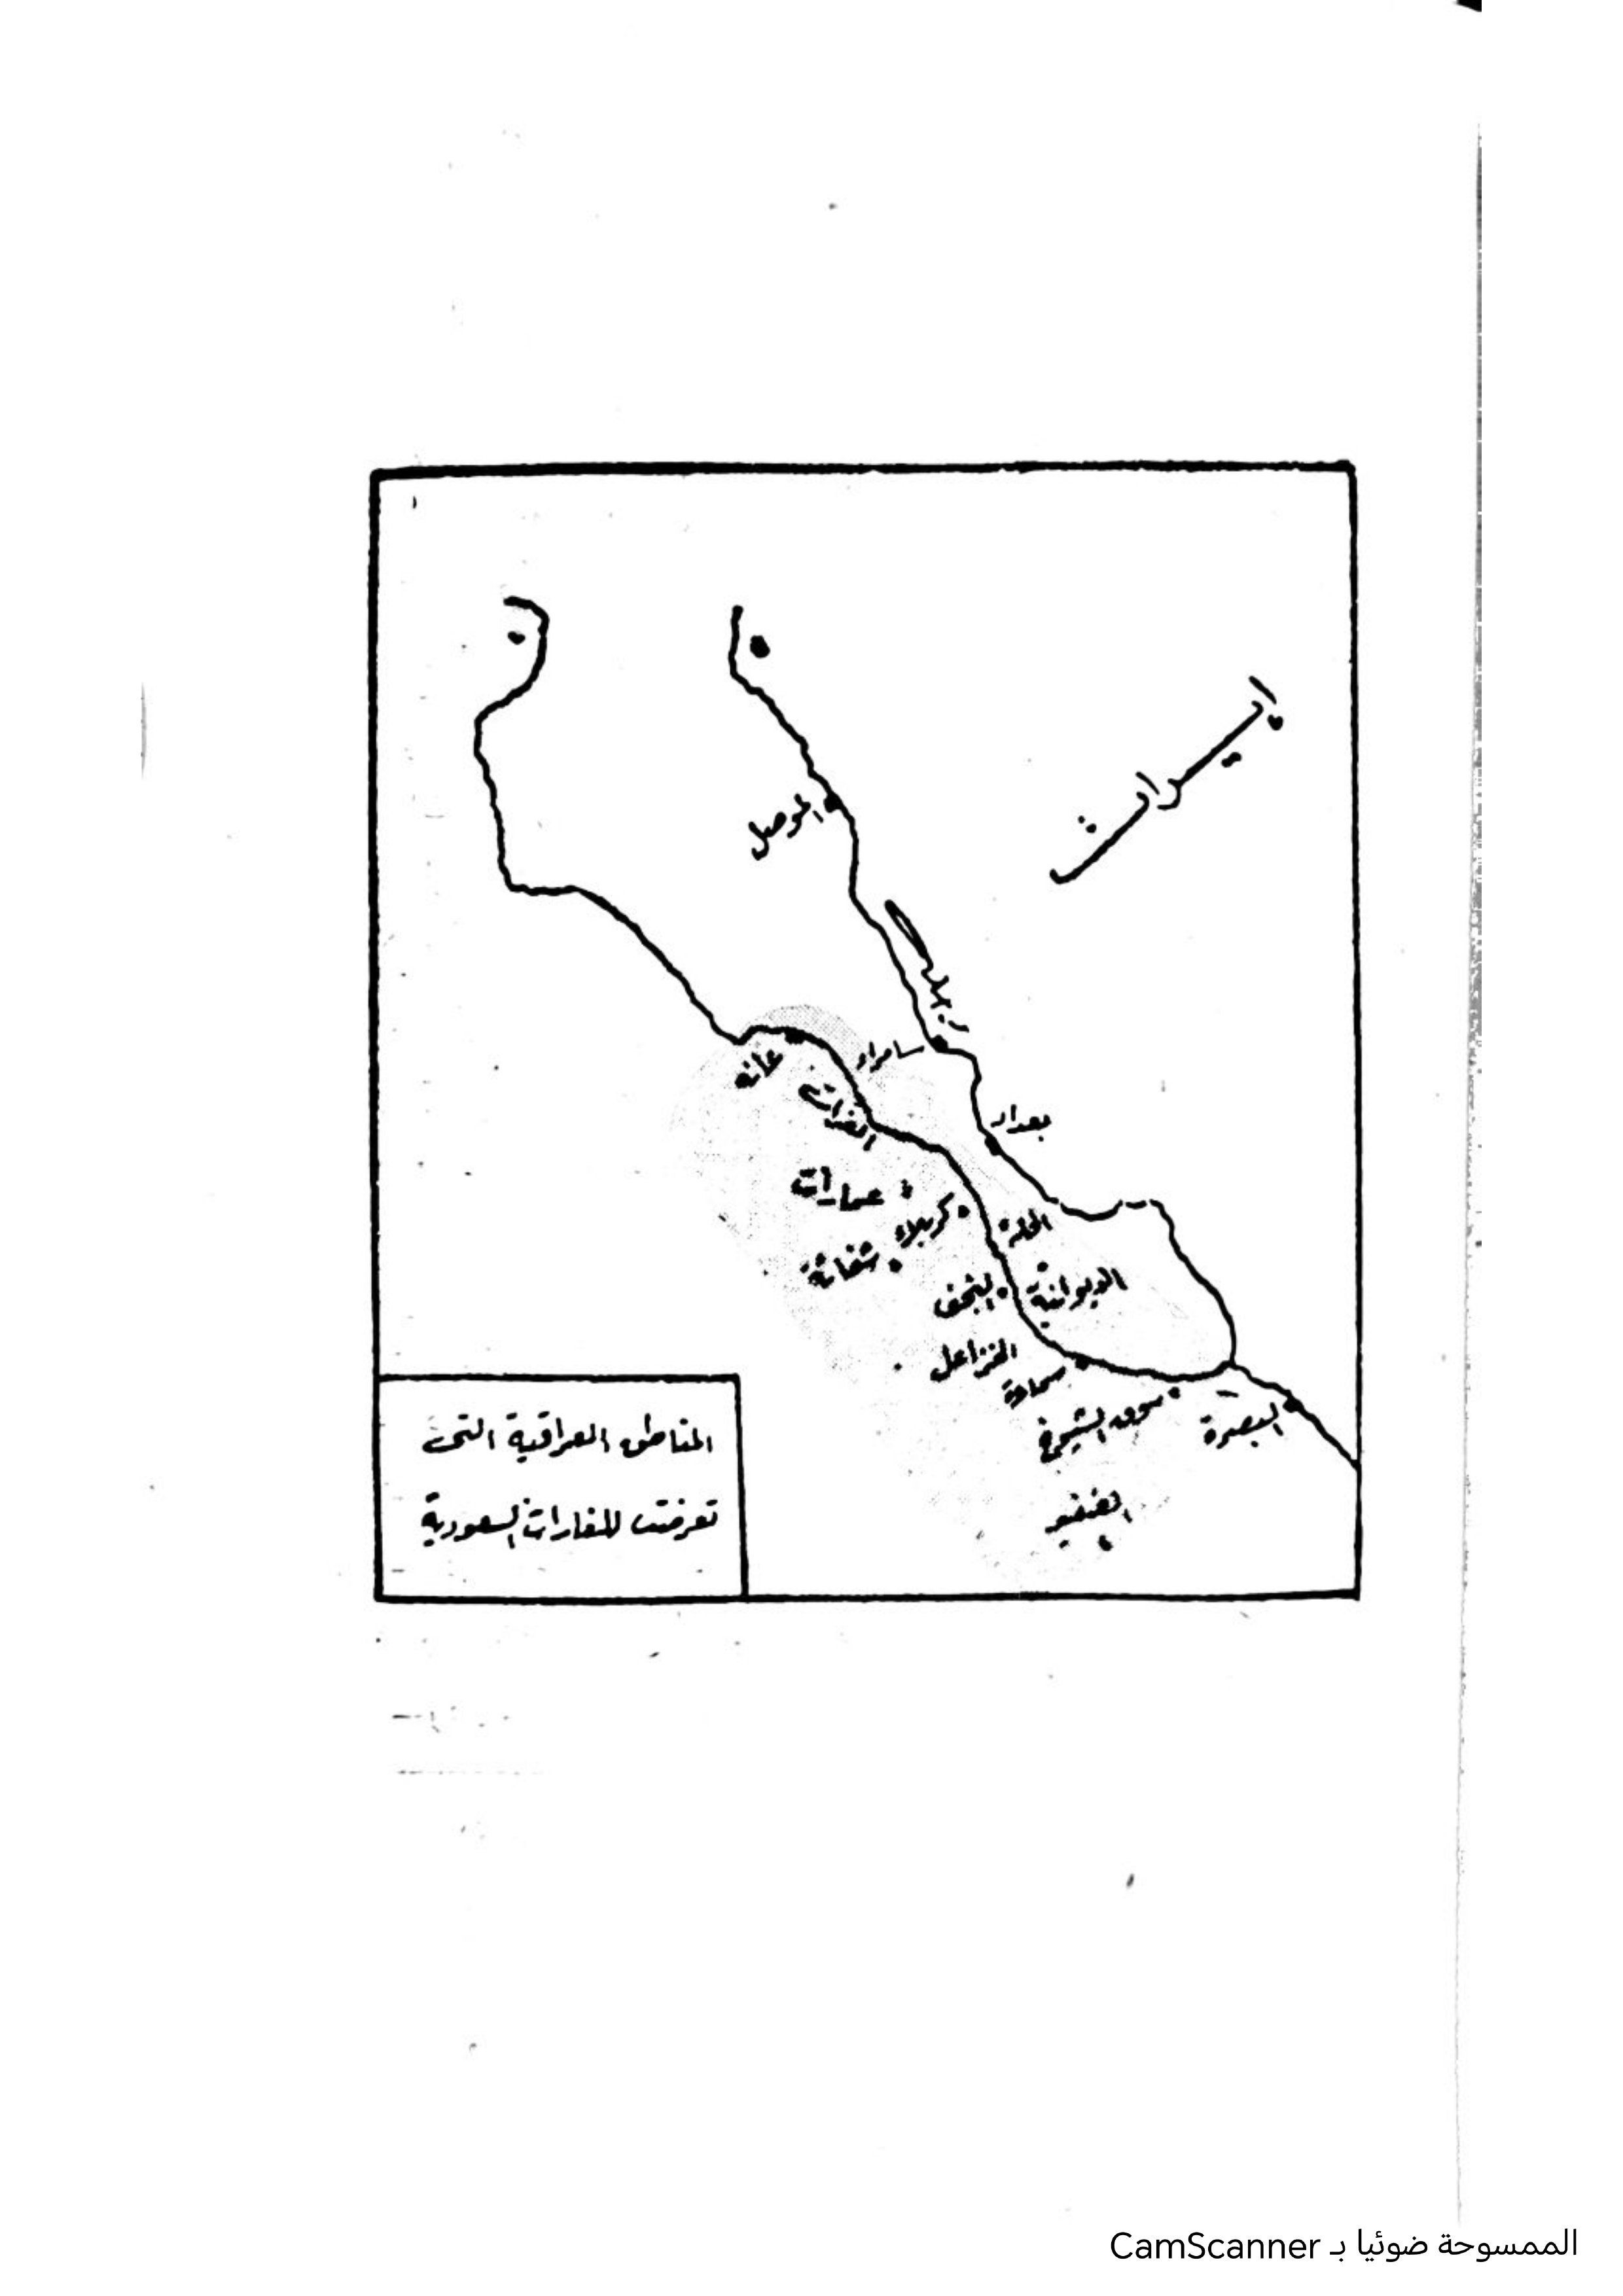 إيران
الموصل
دجلة
سامراء
عانه
الفرات
بغداد
عمارات
كربلاء
الحلة
شفاثة
النجف
الديوانية
الخزاعل
سماوة
سوق الشيوخ
البصرة
المناطق العراقية التي
تعرضت للغارات السعودية
الممسوحة ضوئيا بـ CamScanner